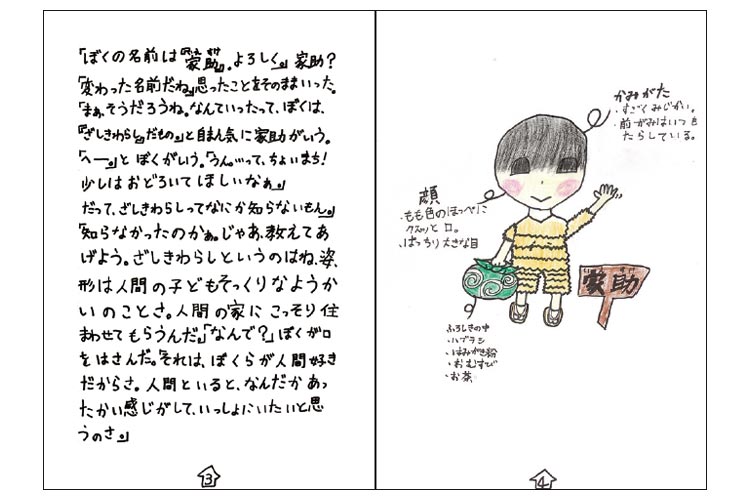 「ぼくの名前は『家助』。よろしく。」家助？
「変わった名前だね」思ったことをそのままいった。
「まぁ、そうだろうね。なんていったって、ぼくは、
『ざしきわらし』だもの。」と自まん気に家助がいう。
「へー。」とぼくがいう。「うん…って、ちょいまち！
少しはおどろいてほしいなぁ。」
だって、ざしきわらしってなにか知らないもん。
「知らなかったのかぁ。じゃあ、教えてあ
げよう。ざしきわらしというのはね、姿、
形は人間の子どもそっくりなようか
いのことさ。人間の家にこっそり住
まわせてもらうんだ。」「なんで？」ぼくが口
をはさんだ。「それは、ぼくらが人間好き
だからさ。人間といると、なんだかあっ
たかい感じがして、いっしょにいたいと思
うのさ。」
3
かみがた
・すごくみじかい。
・前がみはいつも
たらしている。
顔
・もも色のほっぺに
クスッと口。
・ぱっちり大きな目
家助
ふろしきの中
・ハブラシ
・はみがき粉
・おむすび
・お茶
4